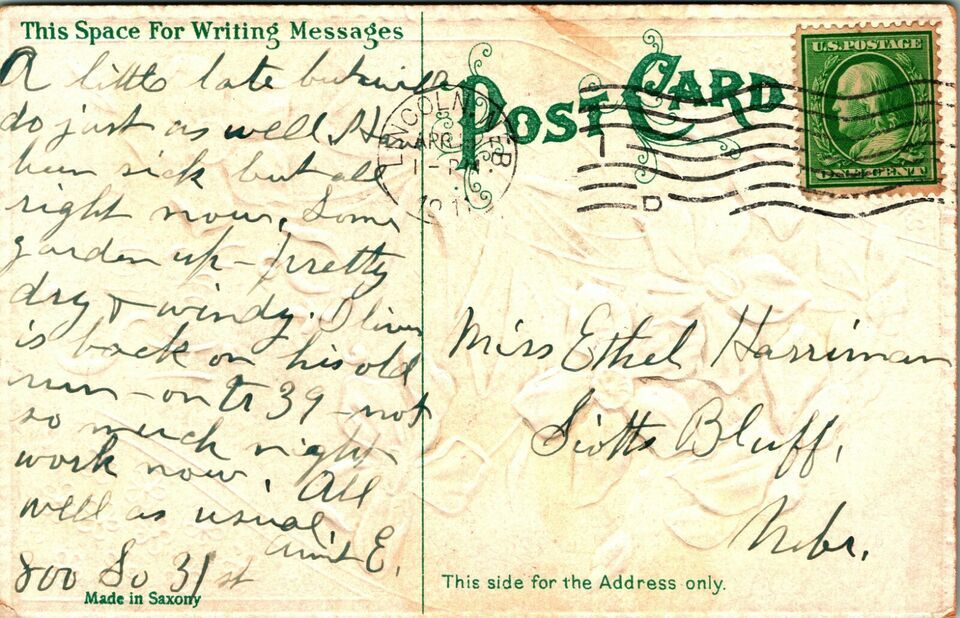 This Space For Writing Messages
A little late but will
do just as well. Have
been sick but all
right now. Some
garden up - pretty
dry & windy. Oliver
is back on his old
run - on tr 39 - not
so much night
work now. All
well as usual.
Aunt E.
800 So 31st
Made in Saxony
POST CARD
LINCOLN, NEB.
APR
1 - PM
1911
D
U.S. POSTAGE
ONE CENT
Miss Ethel Harriman
Scotts Bluff,
Nebr.
This side for the Address only.